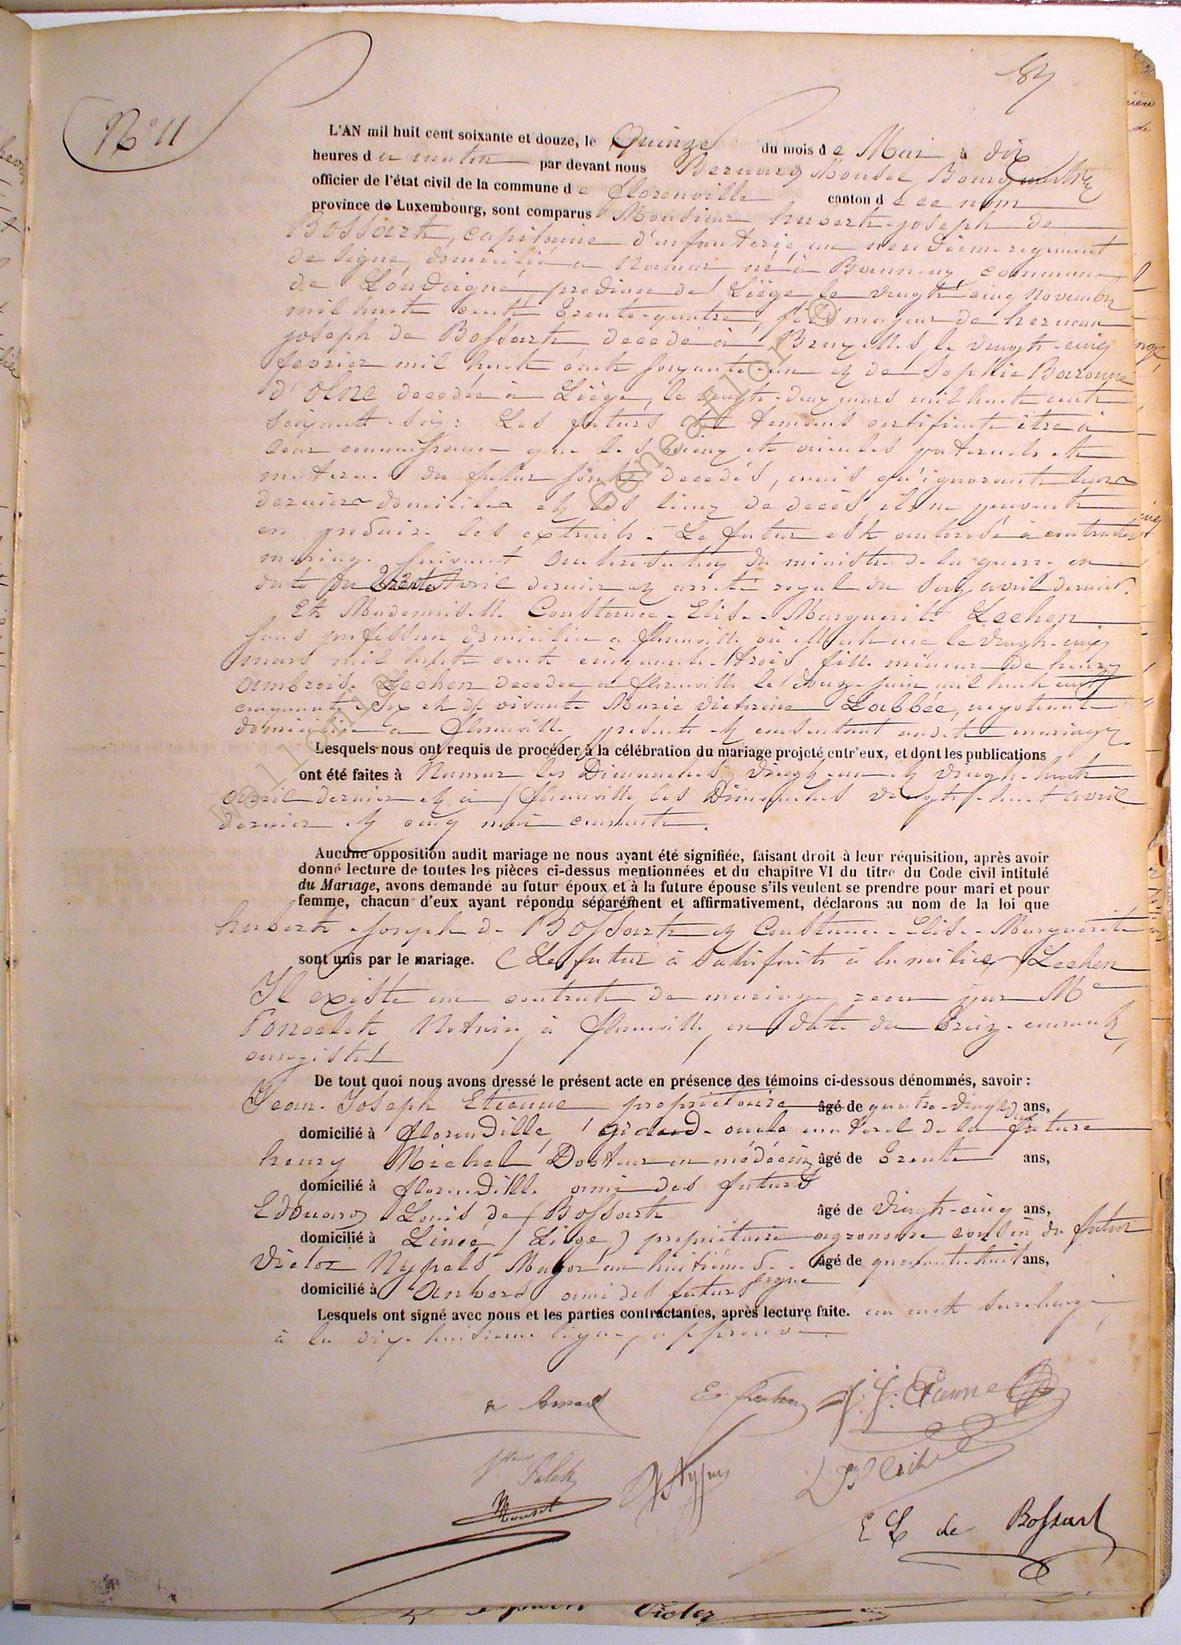 N° 11
L'AN mil huit cent soixante et douze, le Quinze du mois de Mai à dix
heures du matin par devant nous Bernard Mousel, Bourgmestre
officier de l'état civil de la commune de florenville canton de ce nom
province de Luxembourg, sont comparus Monsieur hubert-joseph de
Bossart, capitaine d'infanterie au neuvième regiment
de ligne, domicilié à Namur né à Banneux commune
de Louveigné province de Liège le vingt cinq Novembre
mil huit cent trente-quatre, fils majeur de herman
joseph de Bossart, decedé à Bruxelles, le vingt-cinq
fevrier mil huit cent soixante un et de Sophie Baronne
d'Olne decedée à Liège, le vingt-deux mars mil huit cent
soixante-six: Les futurs et temoins certifient être à
leur connaissance que les aieux et aieules paternels et
maternels du futur sont decedés, mais qu'ignorant leurs
derniers domiciles et les lieux de decès ils ne peuvent
en produire les extraits. Le futur est autorisé à contracter
mariage suivant autorisation du ministre de la guerre en
date du trente Avril dernier et arrêté royal du avril dernier.
Et Mademoiselle Constance-Elise-Marguerite Lechen
sans profession domiciliée à florenville où elle est née le vingt-cinq
mars mil huit cent cinquante-trois, fille mineure de henry
ambroise Lechen decedé à florenville le douze juin mil huit cent
cinquante six et de vivante Marie Victorine Labbée, negotiante
domiciliée à florenville, presente et consentant audit mariage.
Lesquels nous ont requis de procéder à la célébration du mariage projeté entr'eux, et dont les publications
ont été faites à Namur les Dimanches vingt-un et vingt-huit
avril dernier et à florenville les Dimanches vingt-huit avril
dernier et cinq mai courant.
Aucune opposition audit mariage ne nous ayant été signifiée, faisant droit à leur réquisition, après avoir
donné lecture de toutes les pièces ci-dessus mentionnées et du chapitre VI du titre du Code civil intitulé
du Mariage, avons demandé au futur époux et à la future épouse s'ils veulent se prendre pour mari et pour
femme, chacun d'eux ayant répondu séparément et affirmativement, déclarons au nom de la loi que
hubert-joseph de Bossart et Constance-Elise-Marguerite
sont unis par le mariage. (Le futur à satisfait à la milice) Lechen
Il existe un contrat de mariage reçu par Me
Poncelet, Notaire à florenville, en date du treize courant,
enregistré
De tout quoi nous avons dressé le présent acte en présence des témoins ci-dessous dénommés, savoir :
Jean-Joseph Etienne propriétaire âgé de quatre-vingt ans,
domicilié à florenville, grand-oncle maternel de la future
henry Michel Docteur en médécin âgé de trente ans,
domicilié à florenville ami des futurs
Edouard Louis de Bossart âgé de vingt-cinq ans,
domicilié à Lincé (Liège) propriétaire agronome cousin du futur
Victor Nypels Major au huitième de ligne âgé de quarante huit ans,
domicilié à Anvers ami des futurs
Lesquels ont signé avec nous et les parties contractantes, après lecture faite. un mot surchargé
à la dix-huitième ligne, approuvé.
J. J. Etienne
Mousel
E L de Bossart
Victor
www.GeneaFlor ©